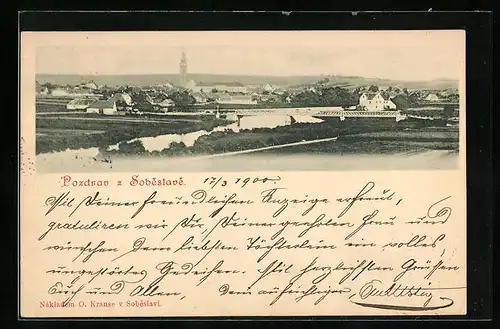 Pozdrav z Soběslavě.
17/3 1900.
Mit Deiner freundlichen Anzeige erfreut,
gratuliren wir Dir, Deiner geehrten Frau und
wünschen Dem liebsten Töchterlein ein volles,
ungestörtes Gedeihen. Mit herzlichsten Grüssen
Euch und Allen, Dein aufrichtiger
Nákladem O. Krause v Soběslavi.